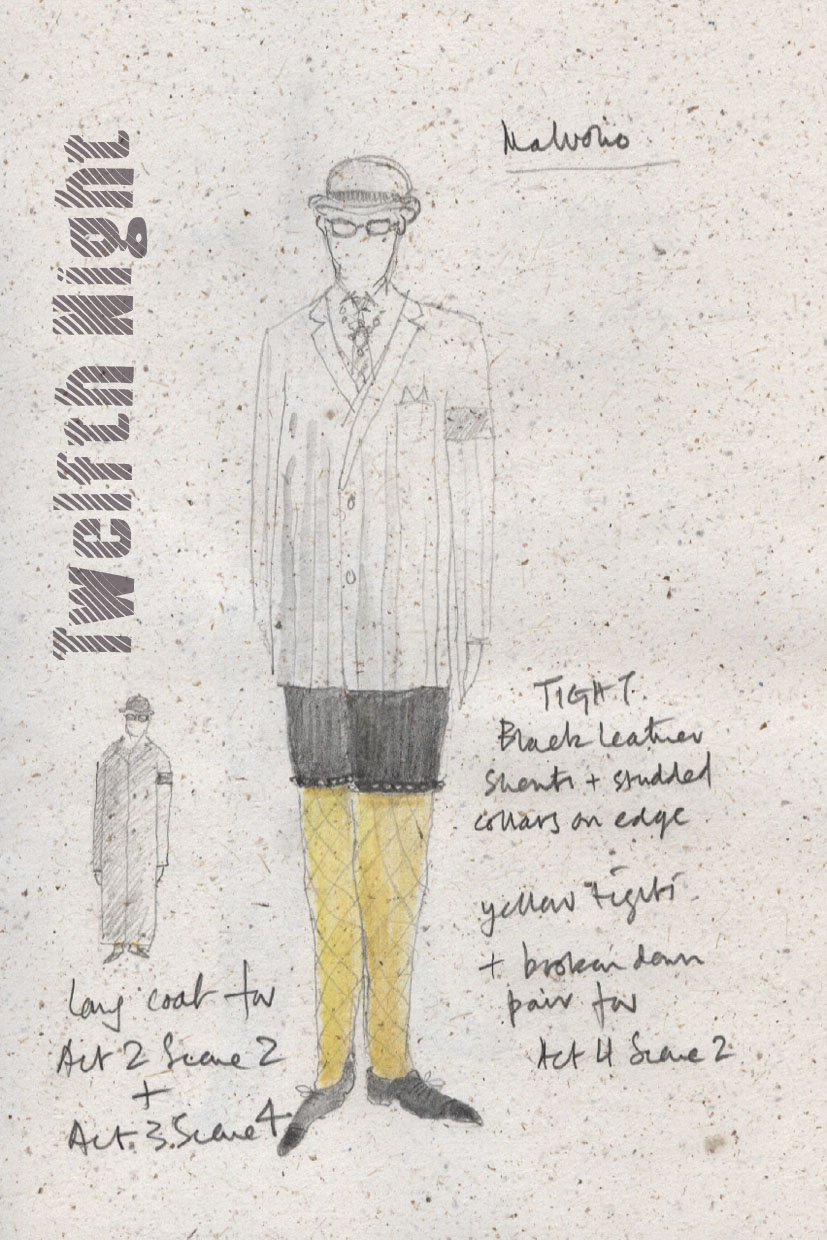 Twelfth Night
Malvolio
TIGHT.
Black leather
shorts + studded
collars on edge
yellow tights
+ broken down
pair for
Act 4 Scene 2
long coat for
Act 2 Scene 2
+
Act 3 Scene 4